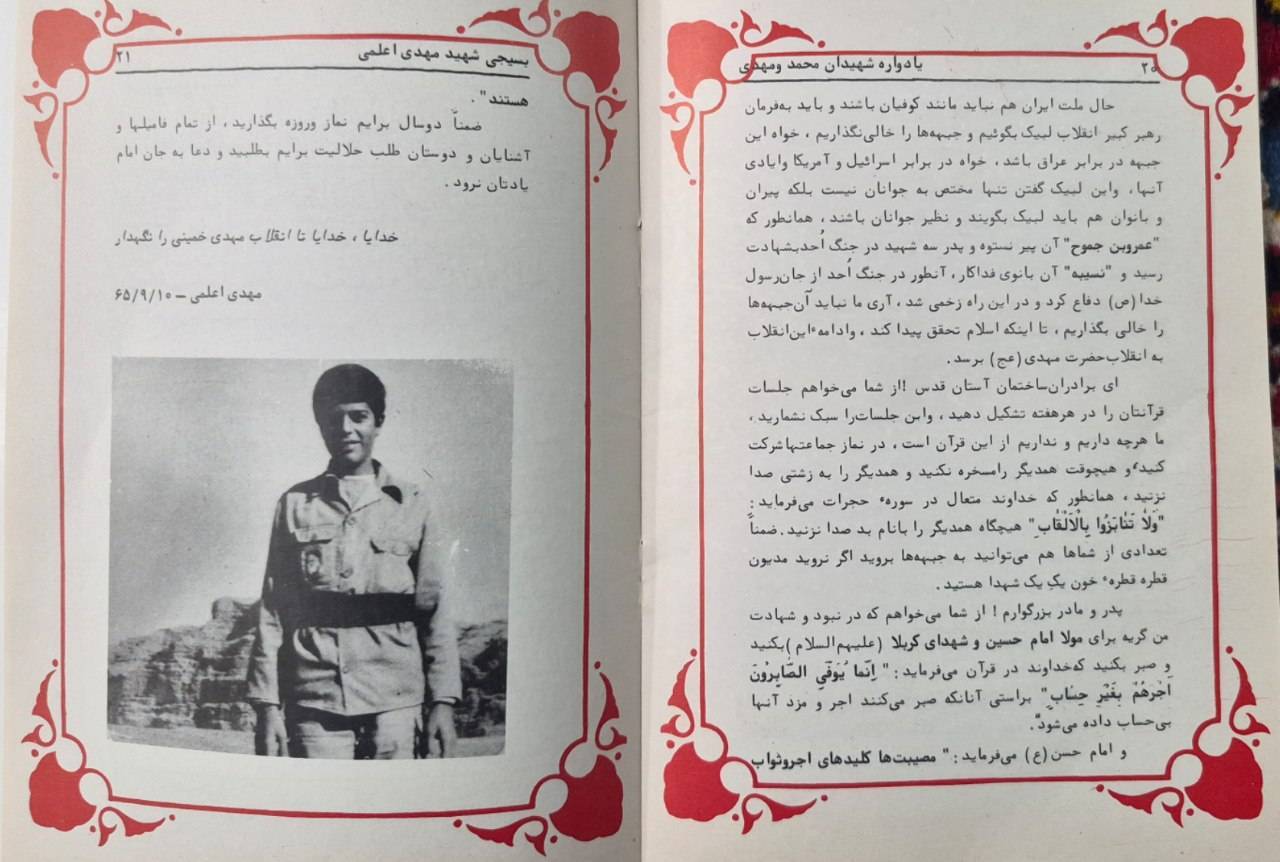 ۲۰
یادواره شهیدان محمد ومهدی
حال ملت ایران هم نباید مانند کوفیان باشند و باید به‌فرمان
رهبر کبیر انقلاب لبیک بگوئیم و جبهه‌ها را خالی‌نگذاریم ، خواه این
جبهه در برابر عراق باشد ، خواه در برابر اسرائیل و آمریکا وایادی
آنها، واین لبیک گفتن تنها مختص به جوانان نیست بلکه پیران
و بانوان هم باید لبیک بگویند و نظیر جوانان باشند ، همانطور که
"عمروبن جموح" آن پیر نستوه و پدر سه شهید در جنگ اُحدبشهادت
رسید و "نسیبه" آن بانوی فداکار، آنطور در جنگ اُحد از جان‌رسول
خدا (ص) دفاع کرد و در این راه زخمی شد ، آری ما نباید آن‌جبهه‌ها
را خالی بگذاریم ، تا اینکه اسلام تحقق پیدا کند ، وادامهٔ این‌انقلاب
به انقلاب‌حضرت مهدی (عج) برسد .
ای برادران‌ساختمان آستان قدس !از شما می‌خواهم جلسات
قرآنتان را در هرهفته تشکیل دهید ، واین جلسات‌را سبک نشمارید ،
ما هرچه داریم و نداریم از این قرآن است ، در نماز جماعتهاشرکت
کنید و هیچوقت همدیگر رامسخره نکنید و همدیگر را به زشتی صدا
نزنید ، همانطور که خداوند متعال در سورهٔ حجرات می‌فرماید :
"وَلاٰ تَنٰابَزُوا بِالْاَلْقٰابِ" هیچگاه همدیگر را بانام بد صدا نزنید. ضمناً
تعدادی از شماها هم می‌توانید به جبهه‌ها بروید اگر نروید مدیون
قطره قطرهٔ خون یک یک شهدا هستید .
پدر و مادر بزرگوارم ! از شما می‌خواهم که در نبود و شهادت
من گریه برای مولا امام حسین و شهدای کربلا (علیهم‌السلام )بکنید
و صبر بکنید که‌خداوند در قرآن می‌فرماید : " اِنَّما یُوَفَّی الصّٰابِرُوْنَ
اَجْرَهُمْ بِغَیْرِ حِسٰابٍ" براستی آنانکه صبر می‌کنند اجر و مزد آنها
بی‌حساب داده می‌شود".
و امام حسن (ع) می‌فرماید : " مصیبت‌ها کلیدهای اجروثواب
بسیجی شهید مهدی اعلمی
۲۱
هستند" .
ضمناً دوسال برایم نماز وروزه بگذارید ، از تمام فامیلها و
آشنایان و دوستان طلب حلالیت برایم بطلبید و دعا به جان امام
یادتان نرود .
خدایا ، خدایا تا انقلاب مهدی خمینی را نگهدار
مهدی اعلمی ــ ۶۵/۹/۱۰